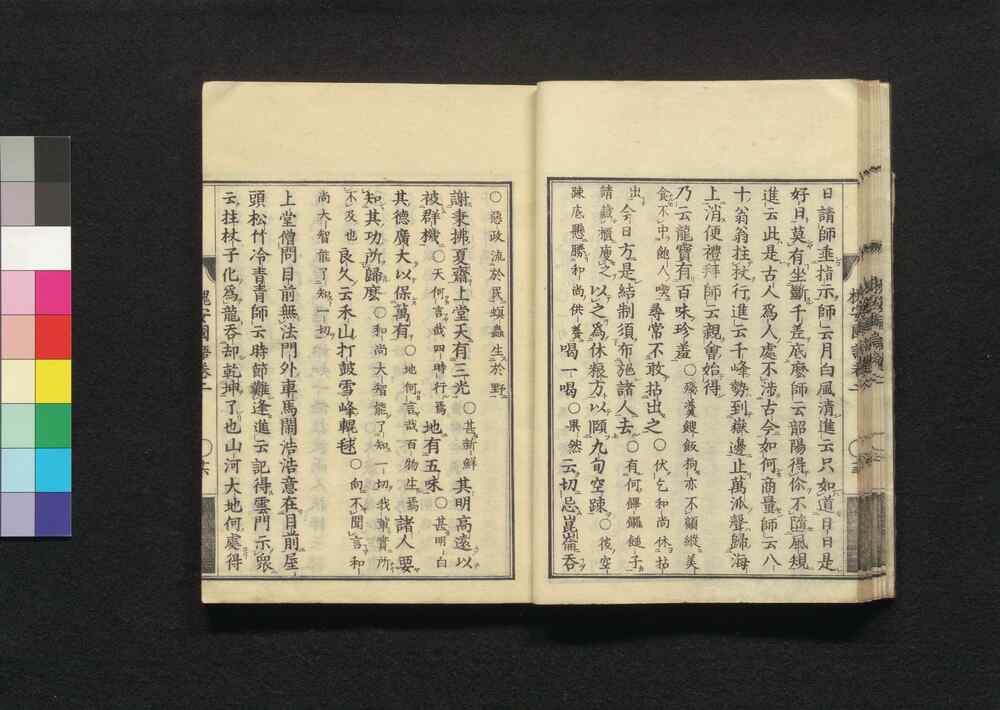 日請師垂指示師云月白風清進云只如道日日是
好日莫有坐斷千差底麽師云韶陽得你不墮風規
進云此是古人爲人處不渉古今如何商量師云八
十翁翁拄杖行進云千峰勢到嶽邊止萬派聲歸海
上消便禮拜師云親會始得
乃云龍寶有百味珍羞○殘羹餿飯狗亦不顧縱美
食不中飽人喫尋常不敢拈出之○伏乞和尚休拈
出今日方是結制須布施諸人去○有何饆饠鎚子
請藏櫃庋之以之爲休粮方以頤九旬空踈○後空
踈底懸勝和尚供養喝一喝○果然云切忌崑崙呑
○惡政流於民螟蟲生於野
謝秉拂夏齋上堂天有三光○甚新鮮其明高遠以
被群機○天何言哉四時行焉地有五味○甚明白
其德廣大以保萬有○地何言哉百物生焉諸人要
知其功所歸麽○和尚大智能了知一切我輩實所
不及也良久云禾山打鼓雪峰輥毬○向不聞言和
尚大智能了知一切
上堂僧問目前無法門外車馬鬧浩浩意在目前屋
頭松竹冷青青師云時節難逢進云記得雲門示衆
云拄杖子化爲龍呑却乾坤了也山河大地何處得
槐安國語卷二